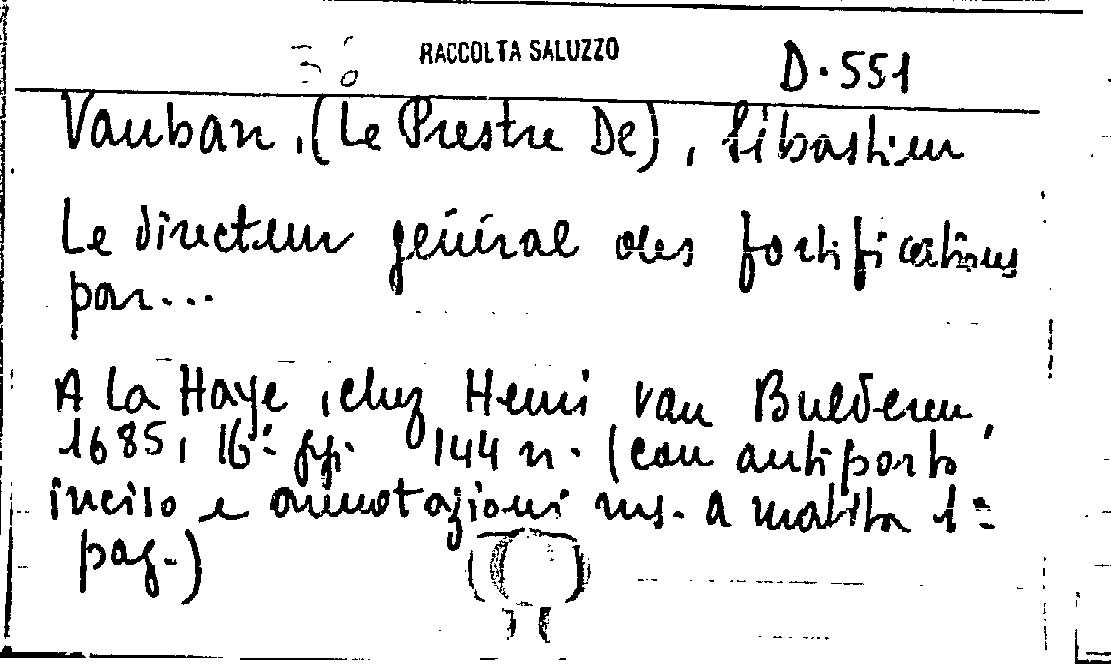 RACCOLTA SALUZZO
D.551
Vauban, (Le Prestre De), Sébastien
Le directeur général des fortifications
par...
A la Haye, chez Henri van Bulderen,
1685, 16° pp. 144 n. (con antiporto
inciso e annotazioni ms. a matita 1=
pag.)